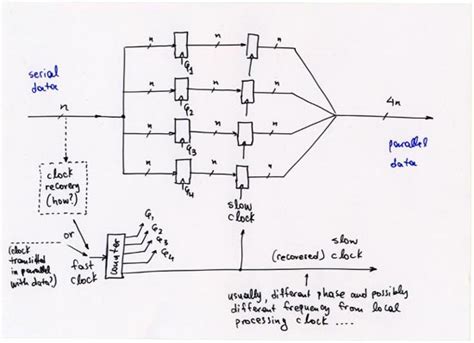 serial
data
n
n
n
n
n
n
n
n
n
n
n
n
n
4n
parallel
data
φ1
φ2
φ3
φ4
clock
recovery
(how?)
or
(clock
transmitted
in parallel
with data?)
fast
clock
counter
φ1
φ2
φ3
φ4
slow
clock
slow
(recovered) clock
usually, different phase and possibly
different frequency from local
processing clock ....